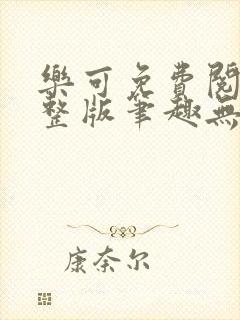 樂可免費閱
整版筆趣無
康奈尔